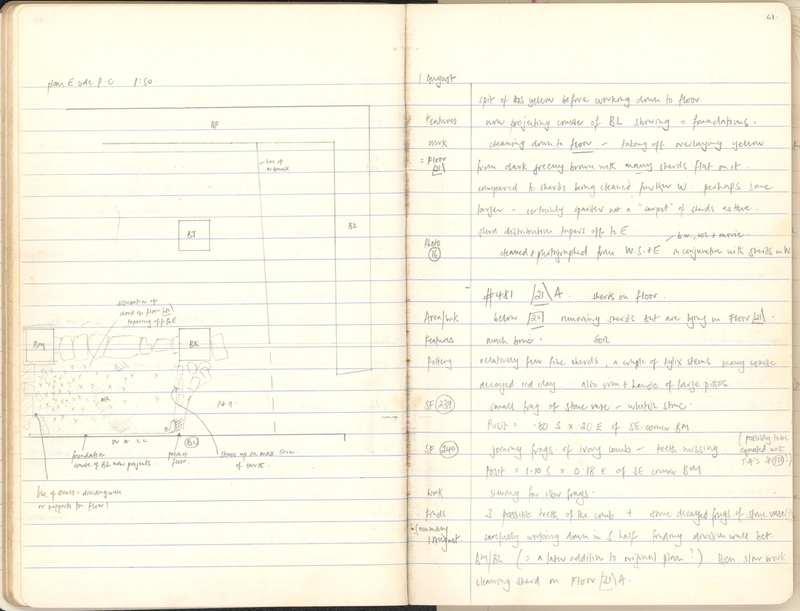 plan E side P.C 1:50.
BP
line of
BJ
BL
distribution of
sherds on floor /21\
tapering off to E
BM
BK
Pit 9
WALL
BL
foundation
course of BL now projects.
patch of
floor.
stones up on max 5cm
of earth
line of stones - dividing wall
or supports for floor?
61.
1 August
spit of this yellow before working down to floor
Features now projecting course of BL showing = foundations.
Work cleaning down to floor - taking off overlaying yellow
= Floor /21\ from dark greeny brown with many sherds flat on it.
compared to sherds being cleaned further W. perhaps some
larger - certainly sparser not a "carpet" of sherds as there.
sherd distribution tapers off to E.
b.w., col + movie.
Photo 16 cleaned + photographed from W.S.+E in conjunction with sherds in W
#481 /21\ A. sherds on floor.
Area/wk below /20\ removing sherds that are lying on Floor /21\.
Features much bone. Soil
Pottery relatively few fine sherds, a couple of kylix stems many coarse
decayed red clay. Also rim + handle of large pithos.
SF 239 small frag of stone vase - whitish stone.
Posit = .80 S x 20 E of SE corner BM
SF 240 joining frags of ivory comb - teeth missing. (possibly to be
equated with
Posit = 1.10 S x 0.18 E of SE corner BM
Work sieving for slow frags.
Finds 3 possible teeth of the comb + three decayed frags of stone vase.
Summary
1 August. carefully working down in S half finding division wall bet.
BM/BL (= a later addition to original plan?) then slow work
cleaning sherd on Floor /21\ A.